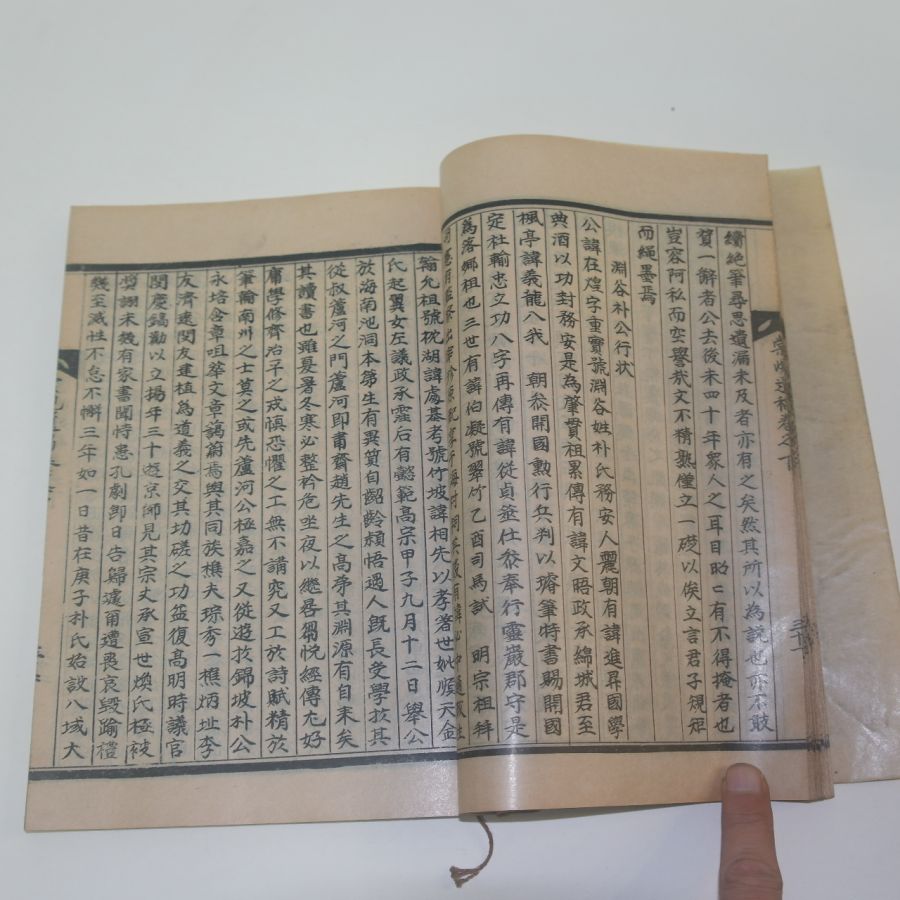 續絶筆尋思遺漏未及者亦有之矣然其所以為說也亦不敢
贊一辭者公去後未四十年衆人之耳目昭〻有不得掩者也
豈容阿私而空譽哉文不精熟僅立一礎以俟立言君子規矩
而繩墨焉
淵谷朴公行狀
公諱在煌字重寶號淵谷姓朴氏務安人麗朝有諱進昇國學
典酒以功封務安是為肇貫祖累傳有諱文晤政承綿城君至
楓亭諱義龍入我 朝叅開國勲行兵判以璿筆特書賜開國
定社輸忠立功八字再傳有諱從貞筮仕叅奉行靈巖郡守是
為落鄕祖也三世有諱伯凝號翠竹乙酉司馬試 明宗祖辩
翰允祖號枕湖諱處基考號竹坡諱相先以孝著世妣順天金
氏起翼女左議政承霔后有懿範高宗甲子九月十二日舉公
於海南池洞本第生有異質自齠齡穎悟過人旣長受學於其
從叔蘆河之門蘆河即肅齋趙先生之高弟其淵源有自来矣
其讀書也雖夏暑冬寒必整衿危坐夜以繼晷蒭悅經傳尤好
庸學修齊治平之戒愼恐懼之工無不講究又工於詩賦精於
筆翰南州之士莫之或先蘆河公極嘉之又從遊於錦坡朴公
永培含章咀華文章藹蔚焉與其同族樵夫琮秀一樵炳址李
友濟遠閔友建植為道義之交其功磋之功益復高明時議官
閔慶鎬勸以立揚年三十遊京師見其宗丈承宣世煥氏極被
奬詡未幾有家書聞恃患孔劇卽日告歸遽爾遭喪哀毁踰禮
幾至滅性不怠不懈三年如一日昔在庚子朴氏始設八域大